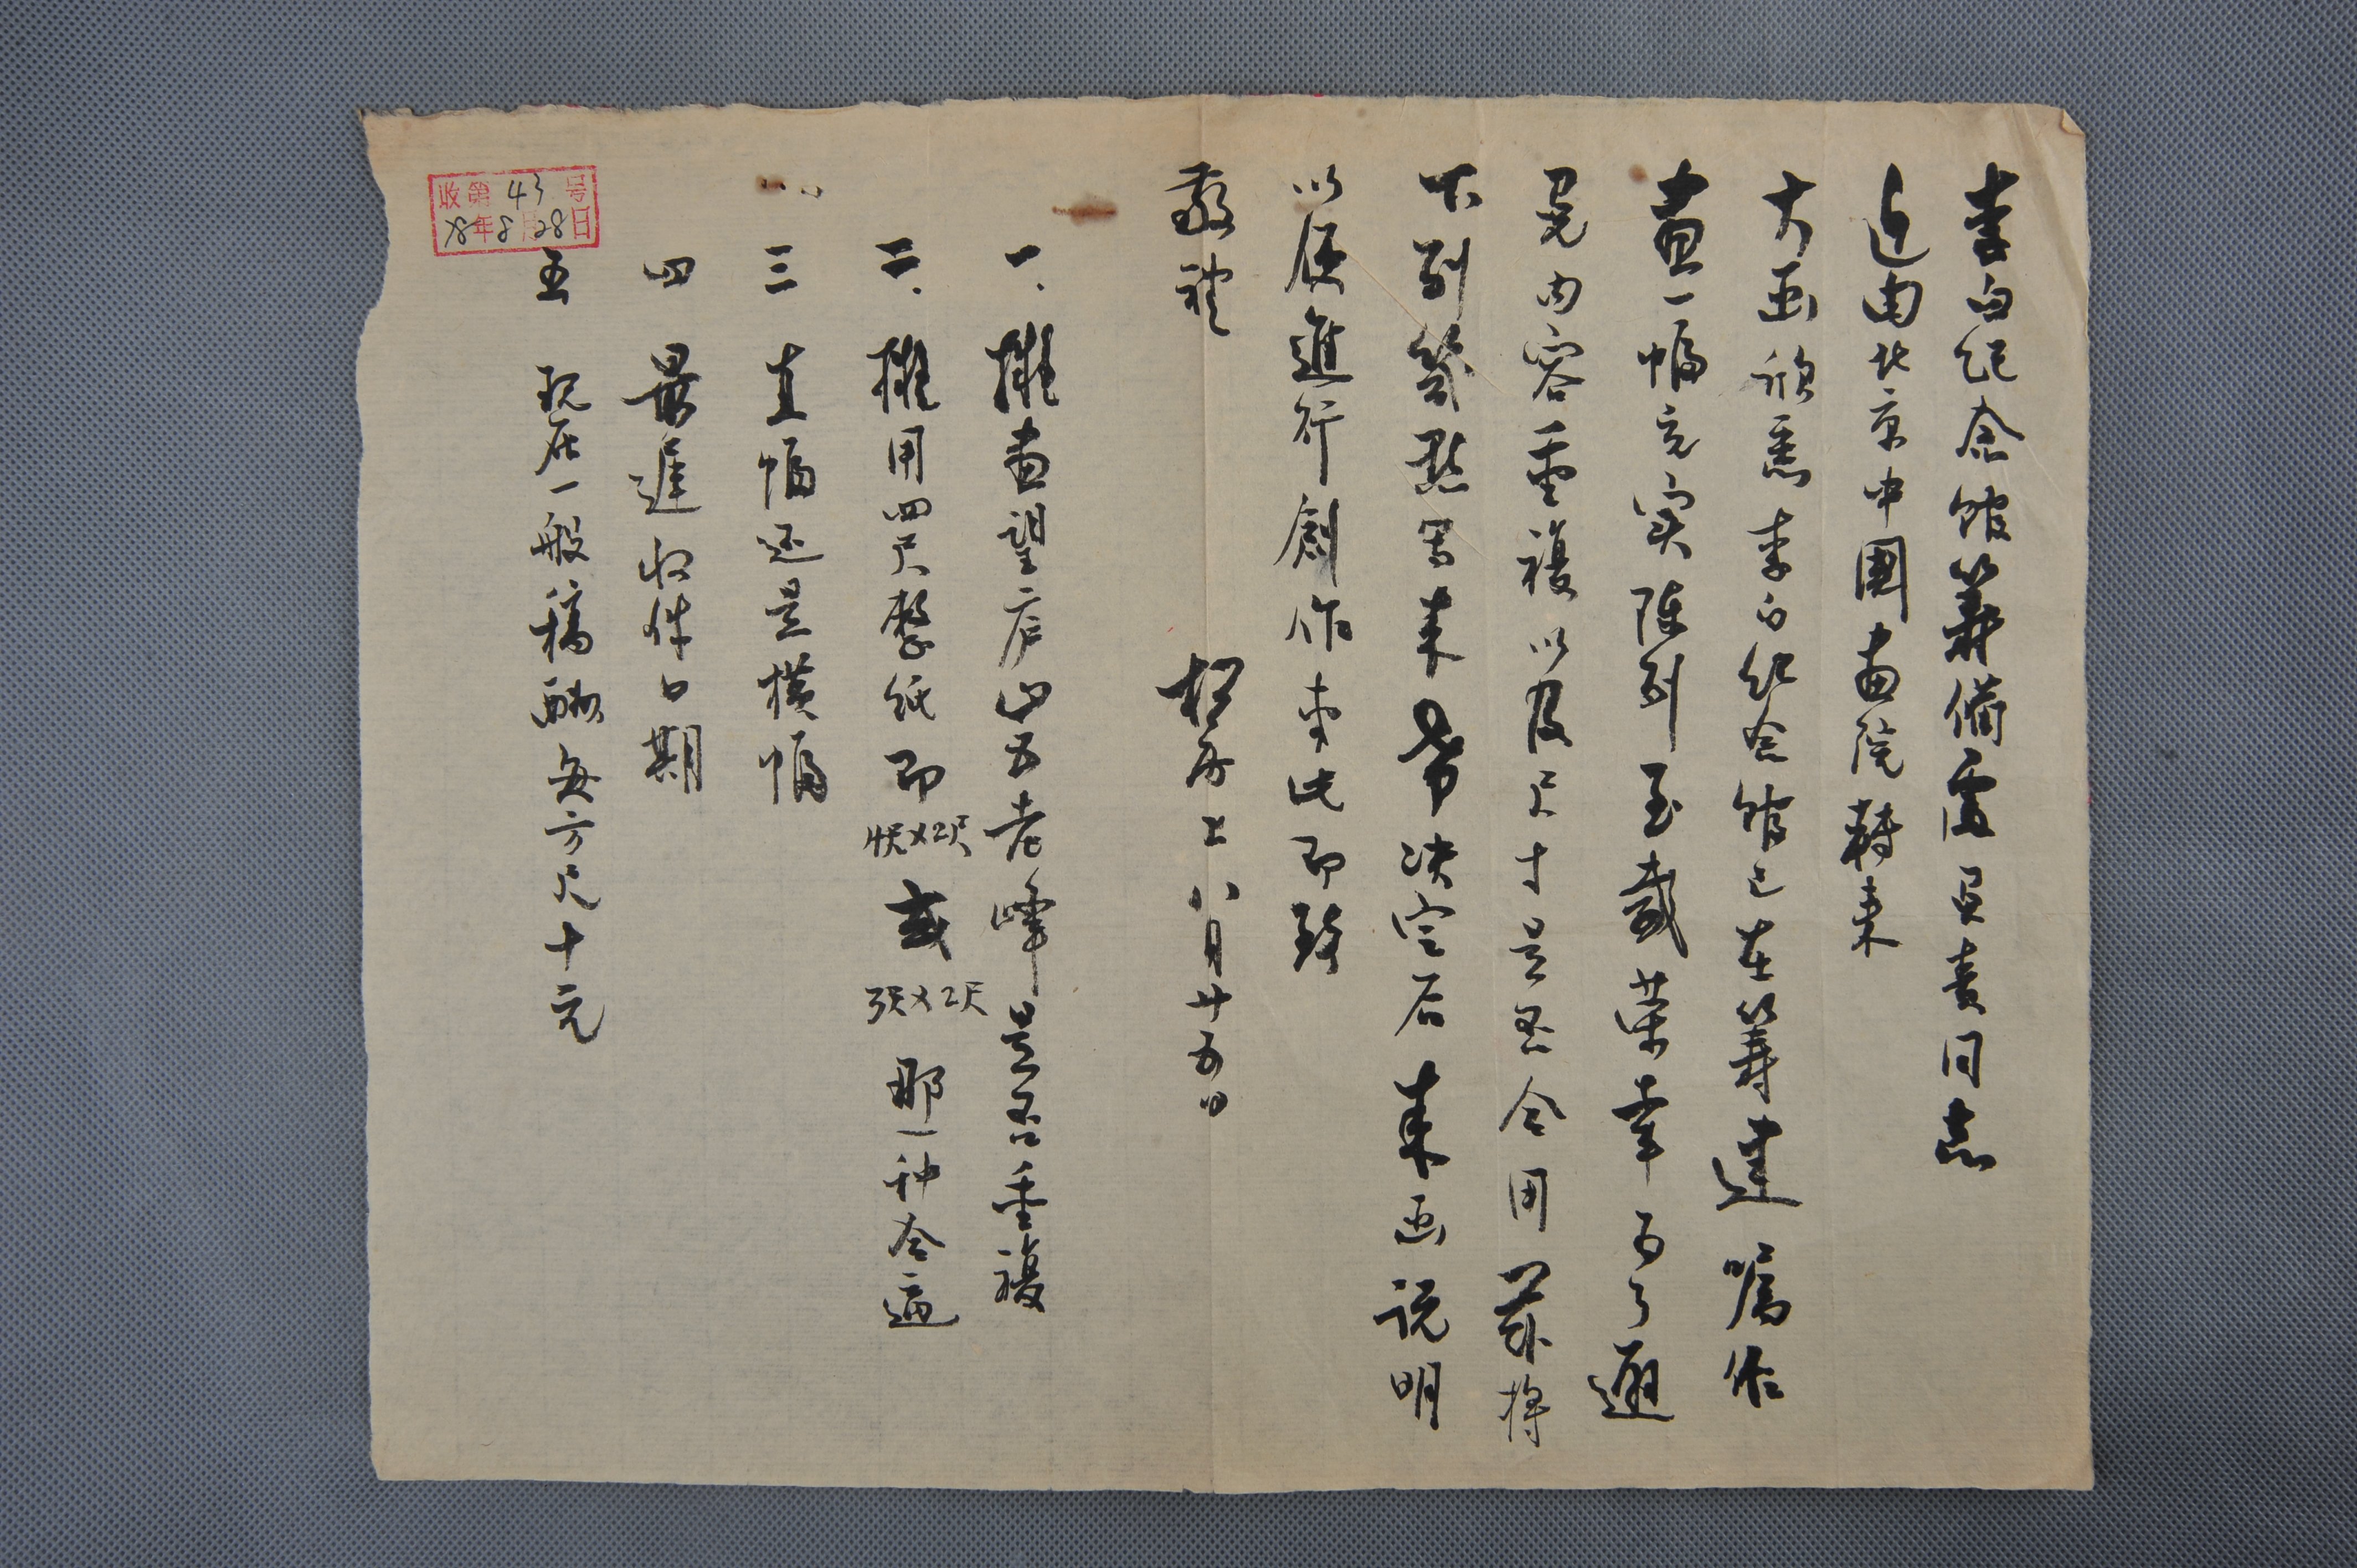 李白纪念馆筹備處負责同志
近由北京中國畫院轉来
大函欣悉李白纪念馆已在筹建嘱作
畫一幅充实陈列至感荣幸為了避
免内容重複以及尺寸是否合用兹将
下列笺點寄来希决定后来函说明
以便進行創作專此即致
敬礼
上八月廿五日
一、擬畫望庐山五老峰是否重複
二、擬用四尺整纸即4尺×2尺或3尺×2尺那一种合适
三 直幅还是横幅
四 最遲收件日期
五 现在一般稿酬每方尺十元
收第43号
78年8月28日